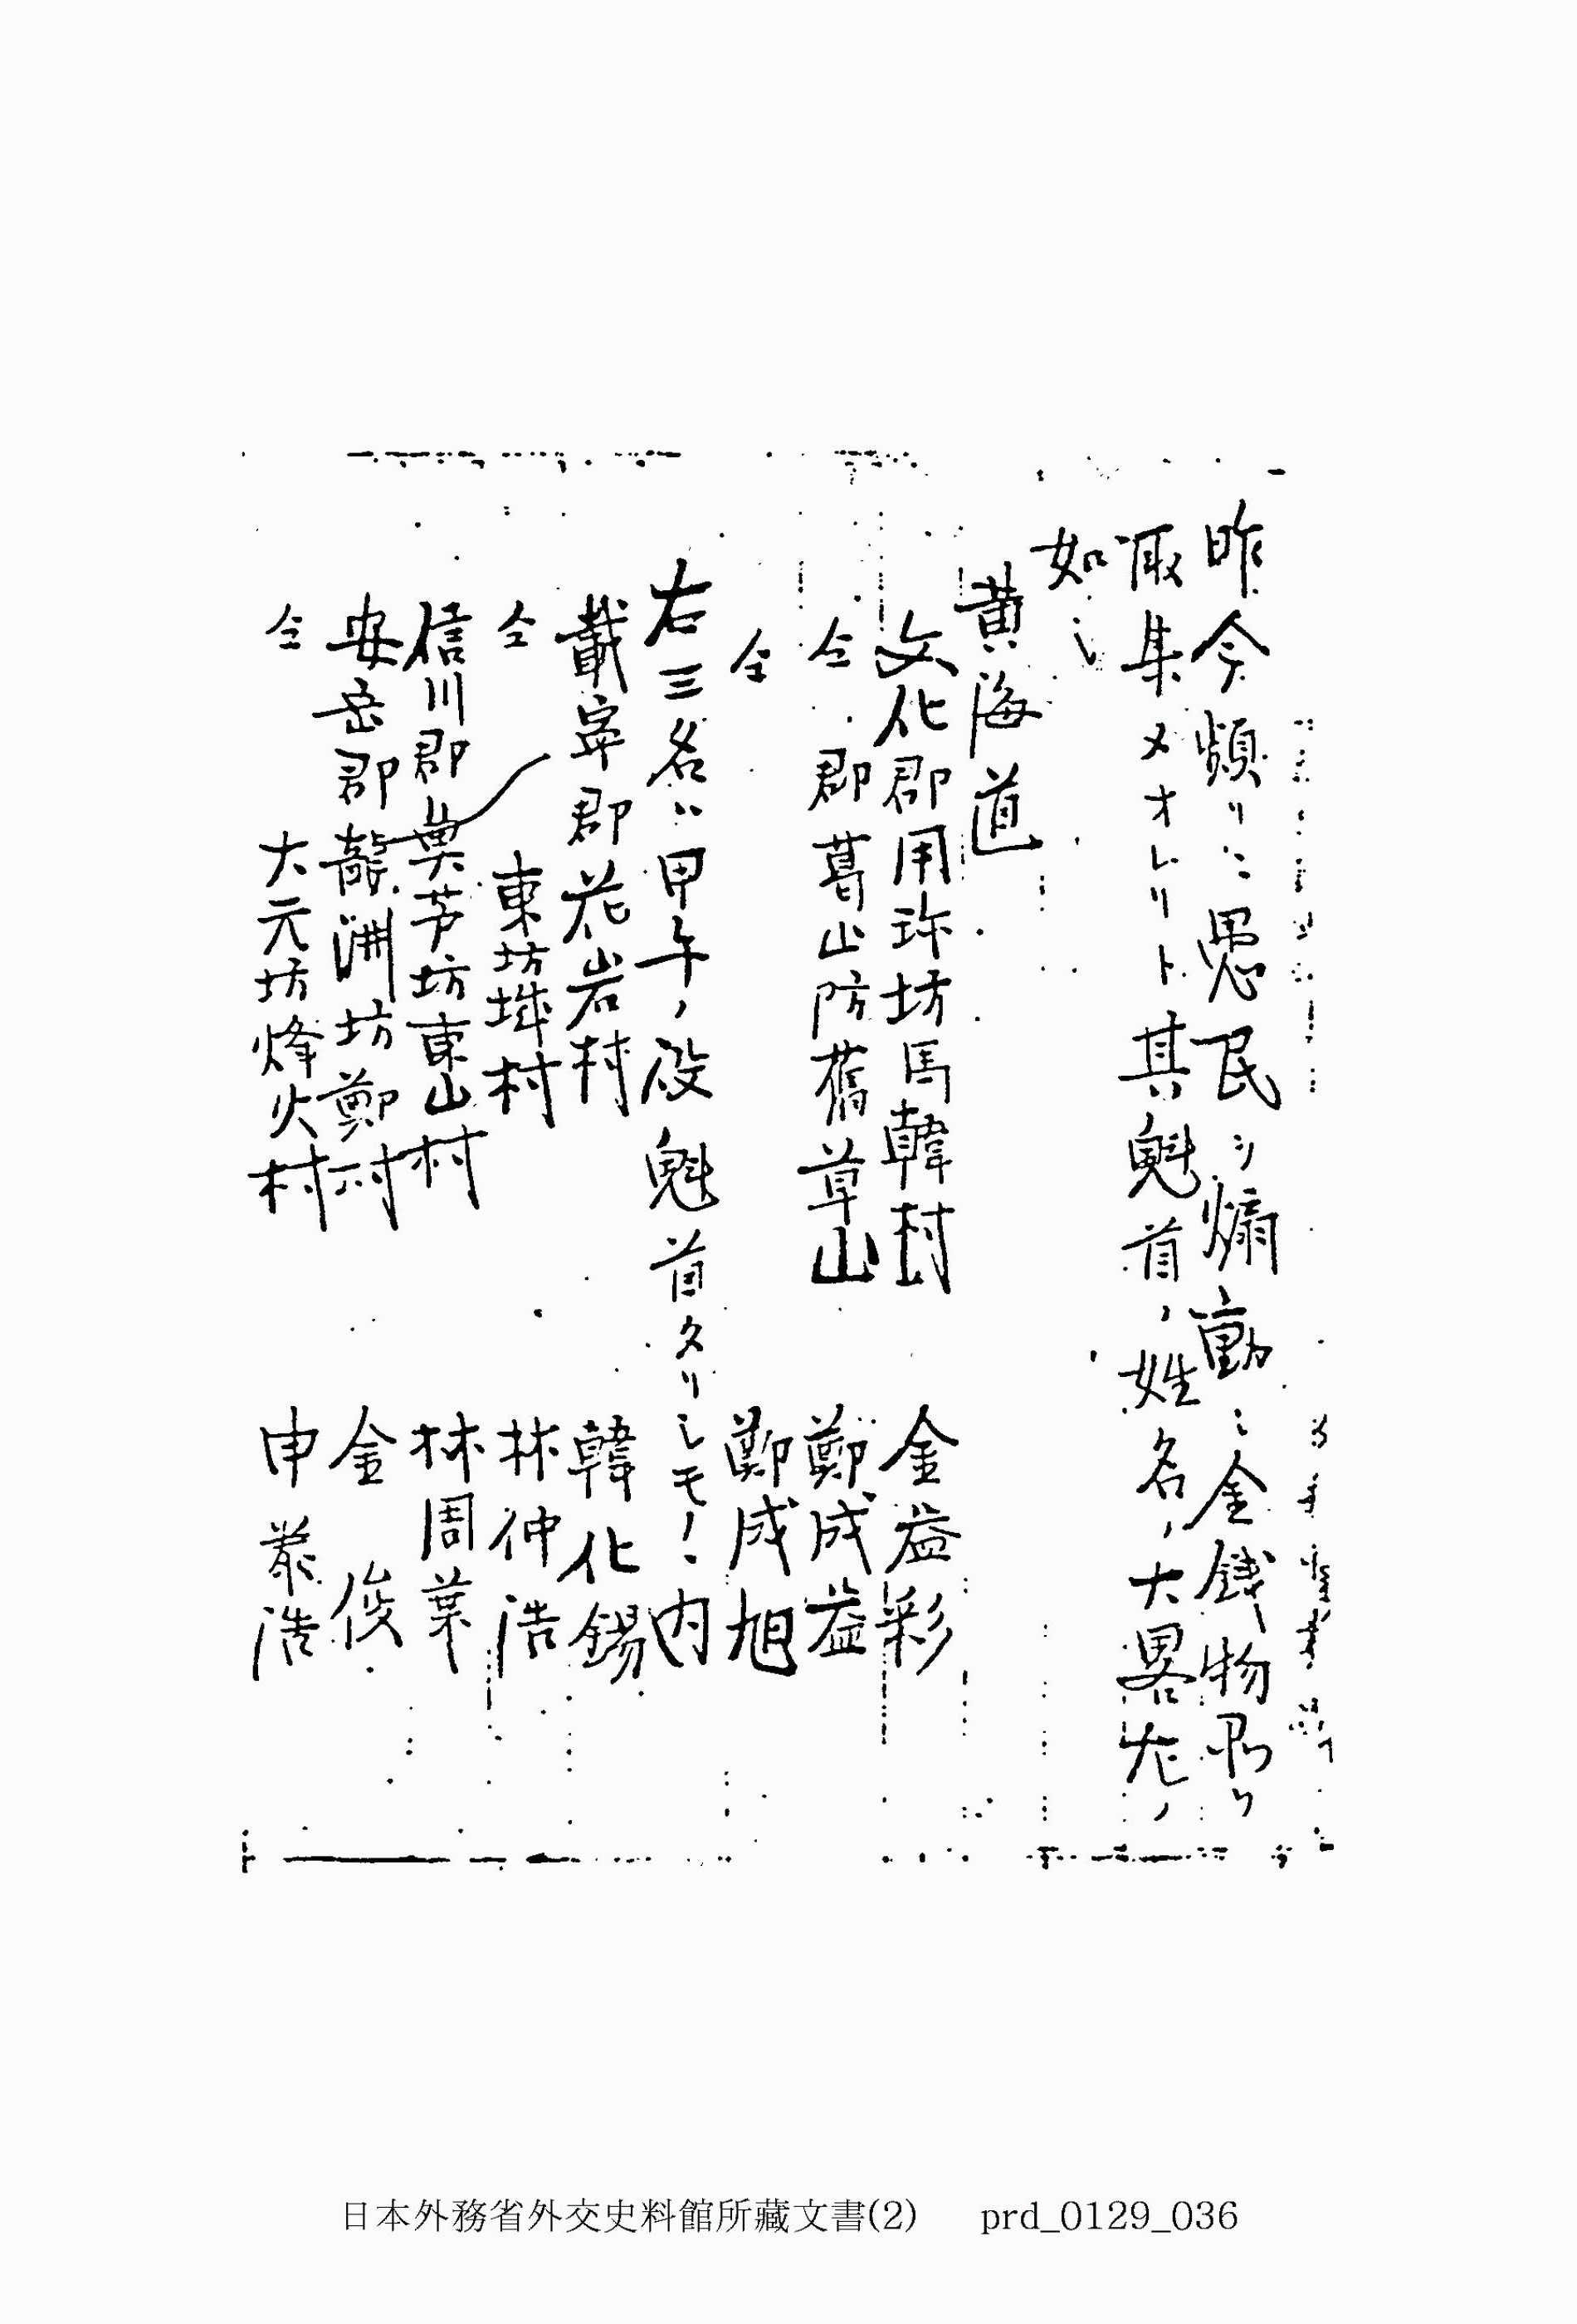 昨今頻リニ愚民ヲ煽動シ金銭物品ヲ
取集メオレリト其魁首ノ姓名ノ大畧左ノ
如シ
黄海道
文化郡用珎坊馬韓村 金益彩
仝 郡葛山防舊草山 鄭成益
仝 鄭成旭
右三名ハ甲午ノ役魁首タリシモノヽ内
載寧郡花岩村 韓化錫
仝 東坊城村 林仲浩
信川郡奥芦坊東山村 林周葉
安岳郡龍洲坊鄭村 金 俊
仝 大元坊烽火村 申 浩
日本外務省外交史料館所藏文書(2) prd_0129_036